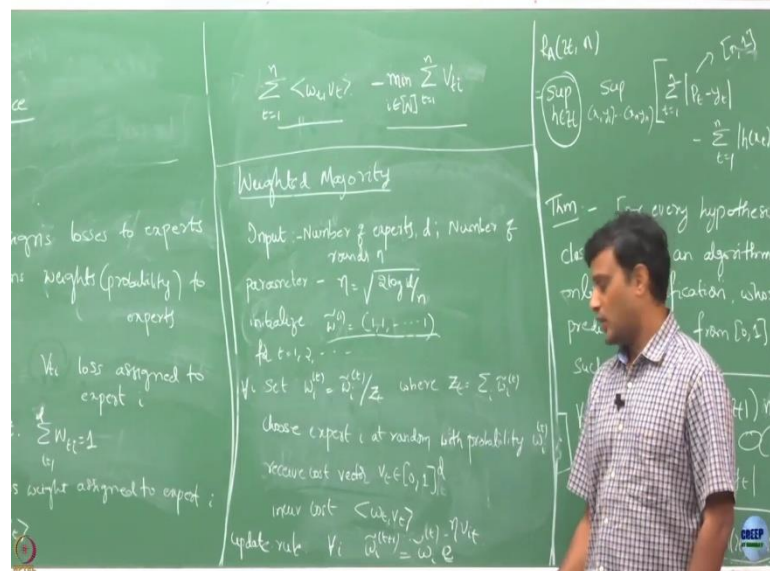 ce
signs losses to experts
ns weights (probability) to
experts
V_{ti} loss assigned to
expert i
\sum_{i=1}^{d} W_{ti} = 1
s weight assigned to expert i
\sum_{t=1}^{n} <w_t, v_t> - \min_{i∈[d]} \sum_{t=1}^{n} V_{ti}
Weighted Majority
Input :- Number of experts, d ; Number of
rounds n
parameter - η = \sqrt{2 log d / n}
initialize \tilde{w}^{(1)} = (1, 1, ---- 1)
for t = 1, 2, - - - -
∀i set w_i^{(t)} = \tilde{w}_i^{(t)} / Z_t where Z_t = \sum_i \tilde{w}_i^{(t)}
choose expert i at random with probability w_i^{(t)}
receive cost vector v_t ∈ [0, 1]^d
incur cost <w_t, v_t>
update rule ∀i \tilde{w}_i^{(t+1)} = \tilde{w}_i^{(t)} e^{-η v_{it}}
R_A(H, n)
= sup_{h∈H} sup_{(x_1,y_1)...(x_n,y_n)} [ \sum_{t=1}^{n} |P_t - y_t|
- \sum_{t=1}^{n} |h(x_t)
Thm :- For every hypothesis
an algorithm
whose
from [0, 1]
such
CDEEP